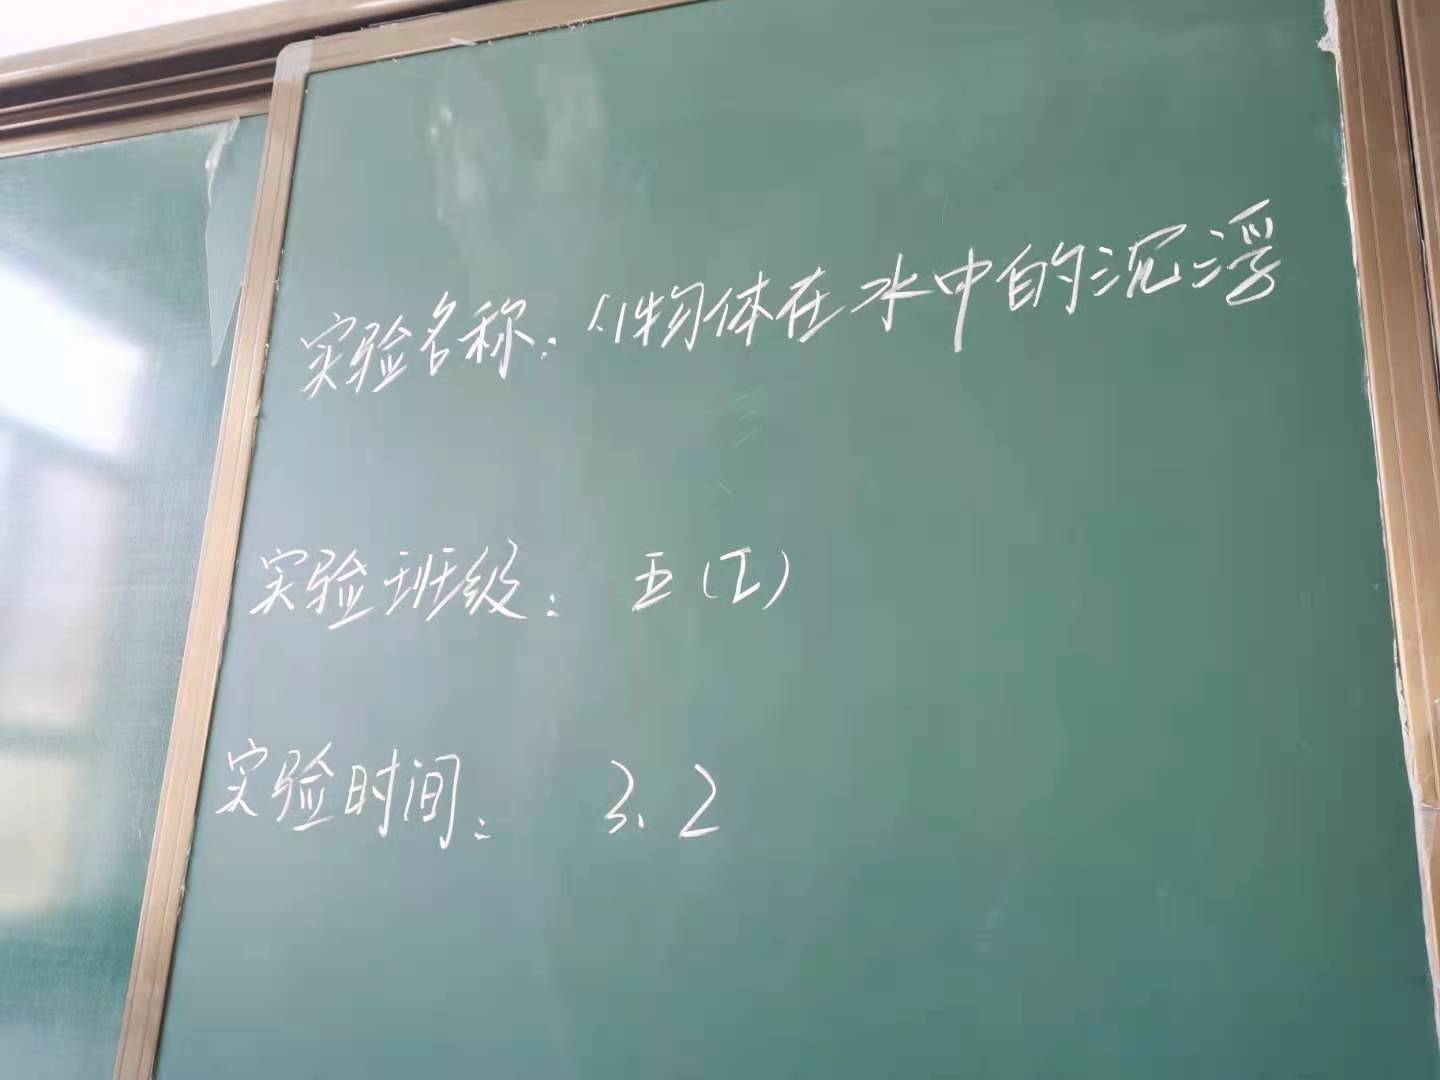 实验名称:物体在水中的沉浮
实验班级: 五(工)
实验时间: 3.2